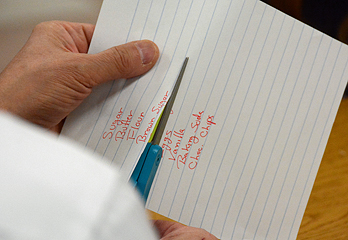 Sugar
Butter
Flour
Brown Sugar
ggs
Vanilla
Baking Soda
Choc. Chips